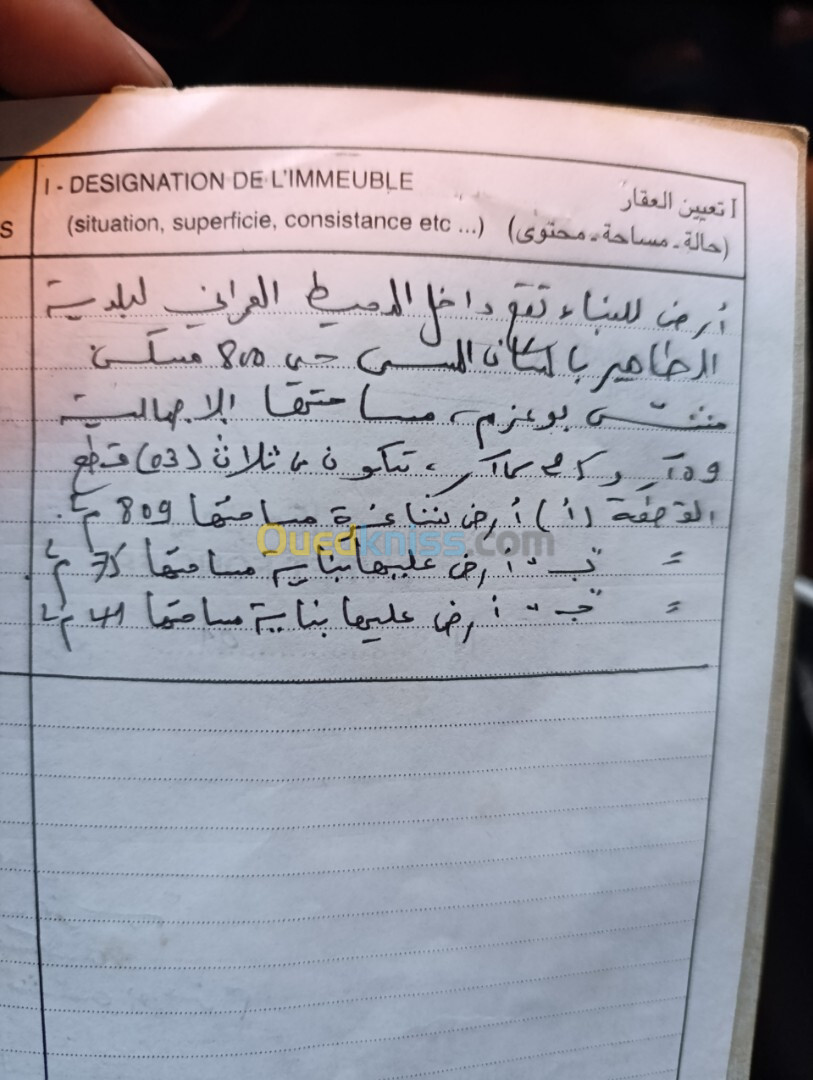 I - DESIGNATION DE L'IMMEUBLE
(situation, superficie, consistance etc ...)
I تعيين العقار
(حالة - مساحة - محتوى)
S
أرض للبناء تقع داخل المحيط العمراني لبلدية
الطاهير بالمكان المسمى حي 800 مسكن
بوعزم، مساحتها الإجمالية
09 آر و 25 سآر، تتكون من ثلاث (03) قطع
القطعة (أ) أرض شاغرة مساحتها 809 م2.
= "ب" أرض عليها بناية مساحتها 75 م2.
= "ج" أرض عليها بناية مساحتها 41 م2
Ouedkniss.com